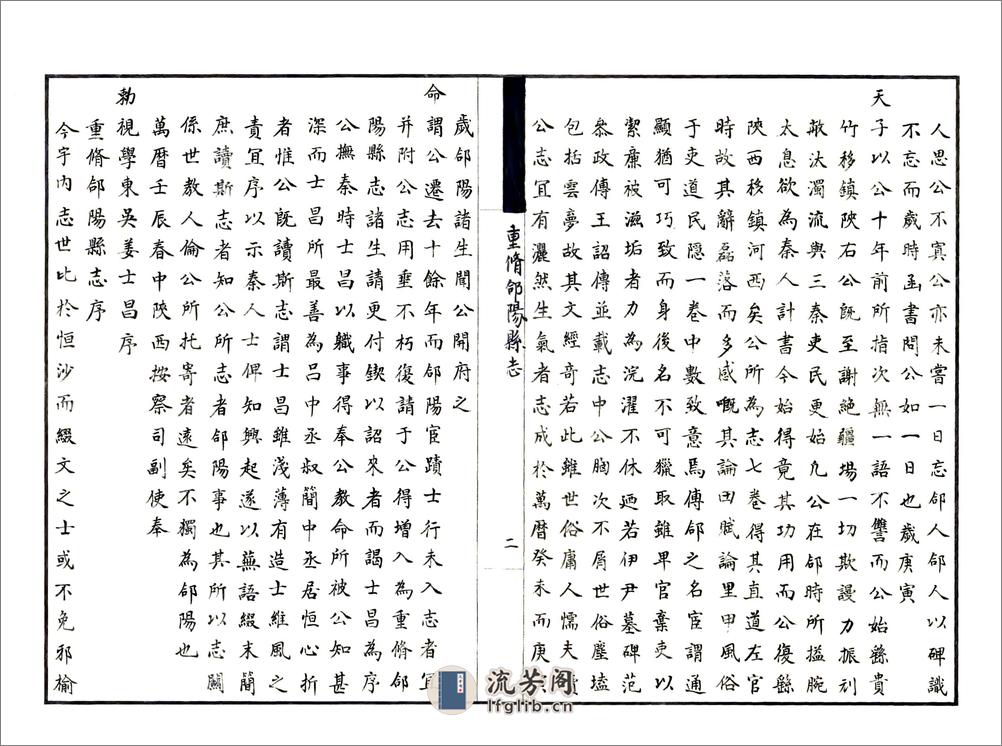 人思公不寘公亦未嘗一日忘郃人郃人以碑識
不忘而歲時函書問公如一日也歲庚寅
天子以公十年前所指次無一語不讐而公始繇貴
竹移鎮陝右公旣至謝絕疆場一切欺謾力振刓
敝汰濁流與三秦吏民更始凡公在郃時所搤腕
太息欲為秦人計書今始得竟其功用而公復繇
陝西移鎮河西矣公所為志七卷得其直道左官
時故其辭磊落而多感嘅其論田賦論里甲風俗
于吏道民隱一卷中數致意焉傳郃之名宦謂通
顯猶可巧致而身後名不可獵取雖卑官棄吏以
潔廉被滋垢者力為浣濯不休迺若伊尹墓碑范
叅政傳王詔傳並載志中公胸次不屑世俗塵壒
包括雲夢故其文經奇若此雖世俗庸人懦夫讀
公志宜有灑然生氣者志成於萬曆癸未而庚
重脩郃陽縣志
二
歲郃陽諸生聞公開府之
命謂公遷去十餘年而郃陽宦蹟士行未入志者宜
并附公志用垂不朽復請于公得增入為重脩郃
陽縣志諸生請更付鍥以詔來者而謁士昌為序
公撫秦時士昌以職事得奉公教命所被公知甚
深而士昌所最善為呂中丞叔簡中丞居恒心折
者惟公旣讀斯志謂士昌雖淺薄有造士維風之
責宜序以示秦人士俾知興起遂以蕪語綴末簡
庶讀斯志者知公所志者郃陽事也其所以志關
係世教人倫公所托寄者遠矣不獨為郃陽也
萬曆壬辰春中陝西按察司副使奉
勑視學東吳姜士昌序
重脩郃陽縣志序
今宇內志世比於恒沙而綴文之士或不免邪揄
流芳阁
lfglib.cn